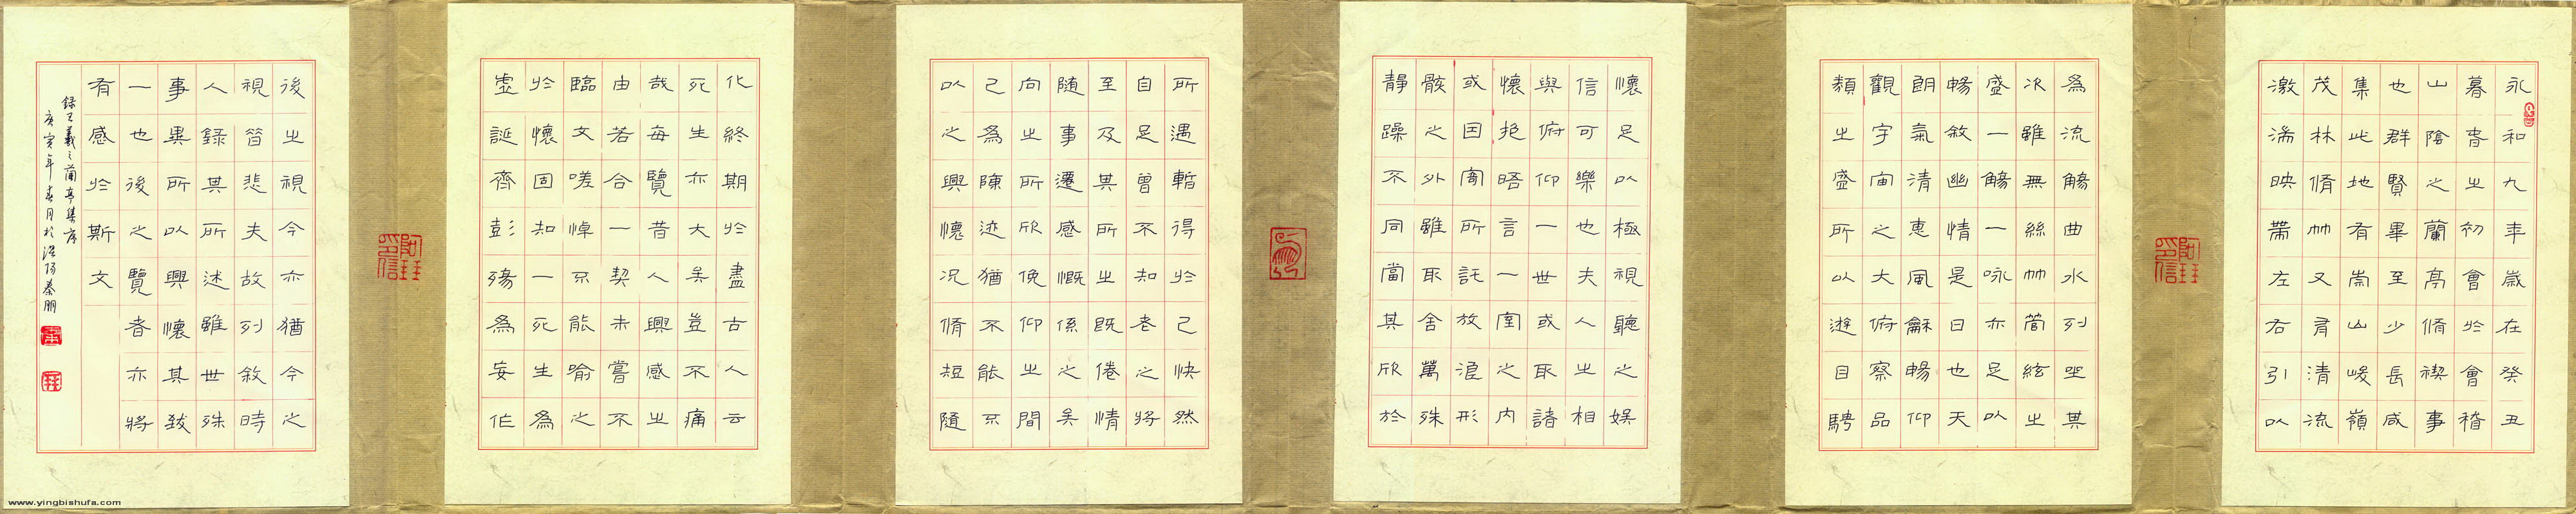 永和九年歲在癸丑
暮春之初會於會稽
山陰之蘭亭脩禊事
也群賢畢至少長咸
集此地有崇山峻嶺
茂林脩竹又有清流
激湍映帶左右引以
為流觴曲水列坐其
次雖無絲竹管絃之
盛一觴一咏亦足以
暢敘幽情是日也天
朗氣清惠風龢暢仰
觀宇宙之大俯察品
類之盛所以遊目騁
懷足以極視聽之娛
信可樂也夫人之相
與俯仰一世或取諸
懷抱晤言一室之內
或因寄所託放浪形
骸之外雖取舍萬殊
靜躁不同當其欣於
所遇暫得於己快然
自足曾不知老之將
至及其所之既倦情
隨事遷感慨係之矣
向之所欣俛仰之間
已為陳迹猶不能不
以之興懷況脩短隨
化終期於盡古人云
死生亦大矣豈不痛
哉每覽昔人興感之
由若合一契未嘗不
臨文嗟悼不能喻之
於懷固知一死生為
虛誕齊彭殤為妄作
後之視今亦猶今之
視昔悲夫故列敘時
人錄其所述雖世殊
事異所以興懷其致
一也後之覽者亦將
有感於斯文
錄王羲之蘭亭集序
庚寅年春月於
www.yingbishufa.com